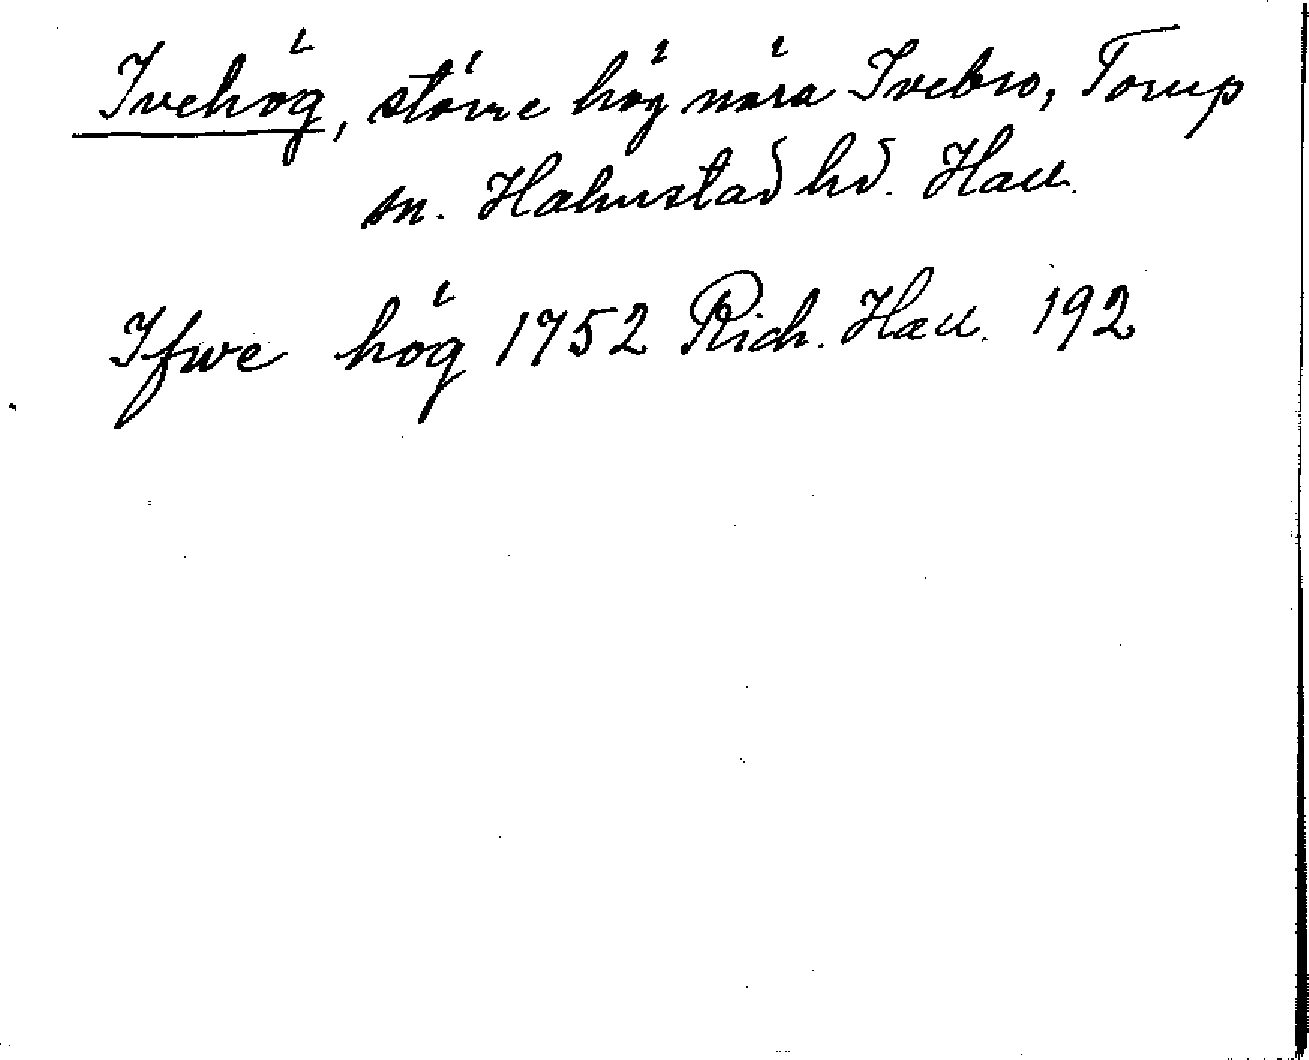 Ivehög, större hög nära Ivebro, Torup
sn. Halmstad hd. Hall.
Ifwe hög 1752 Rich. Hall. 192